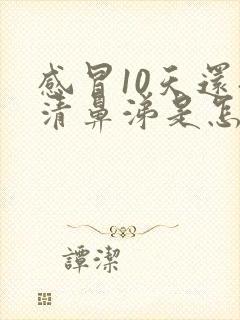 感冒10天還
清鼻涕是怎
譚潔